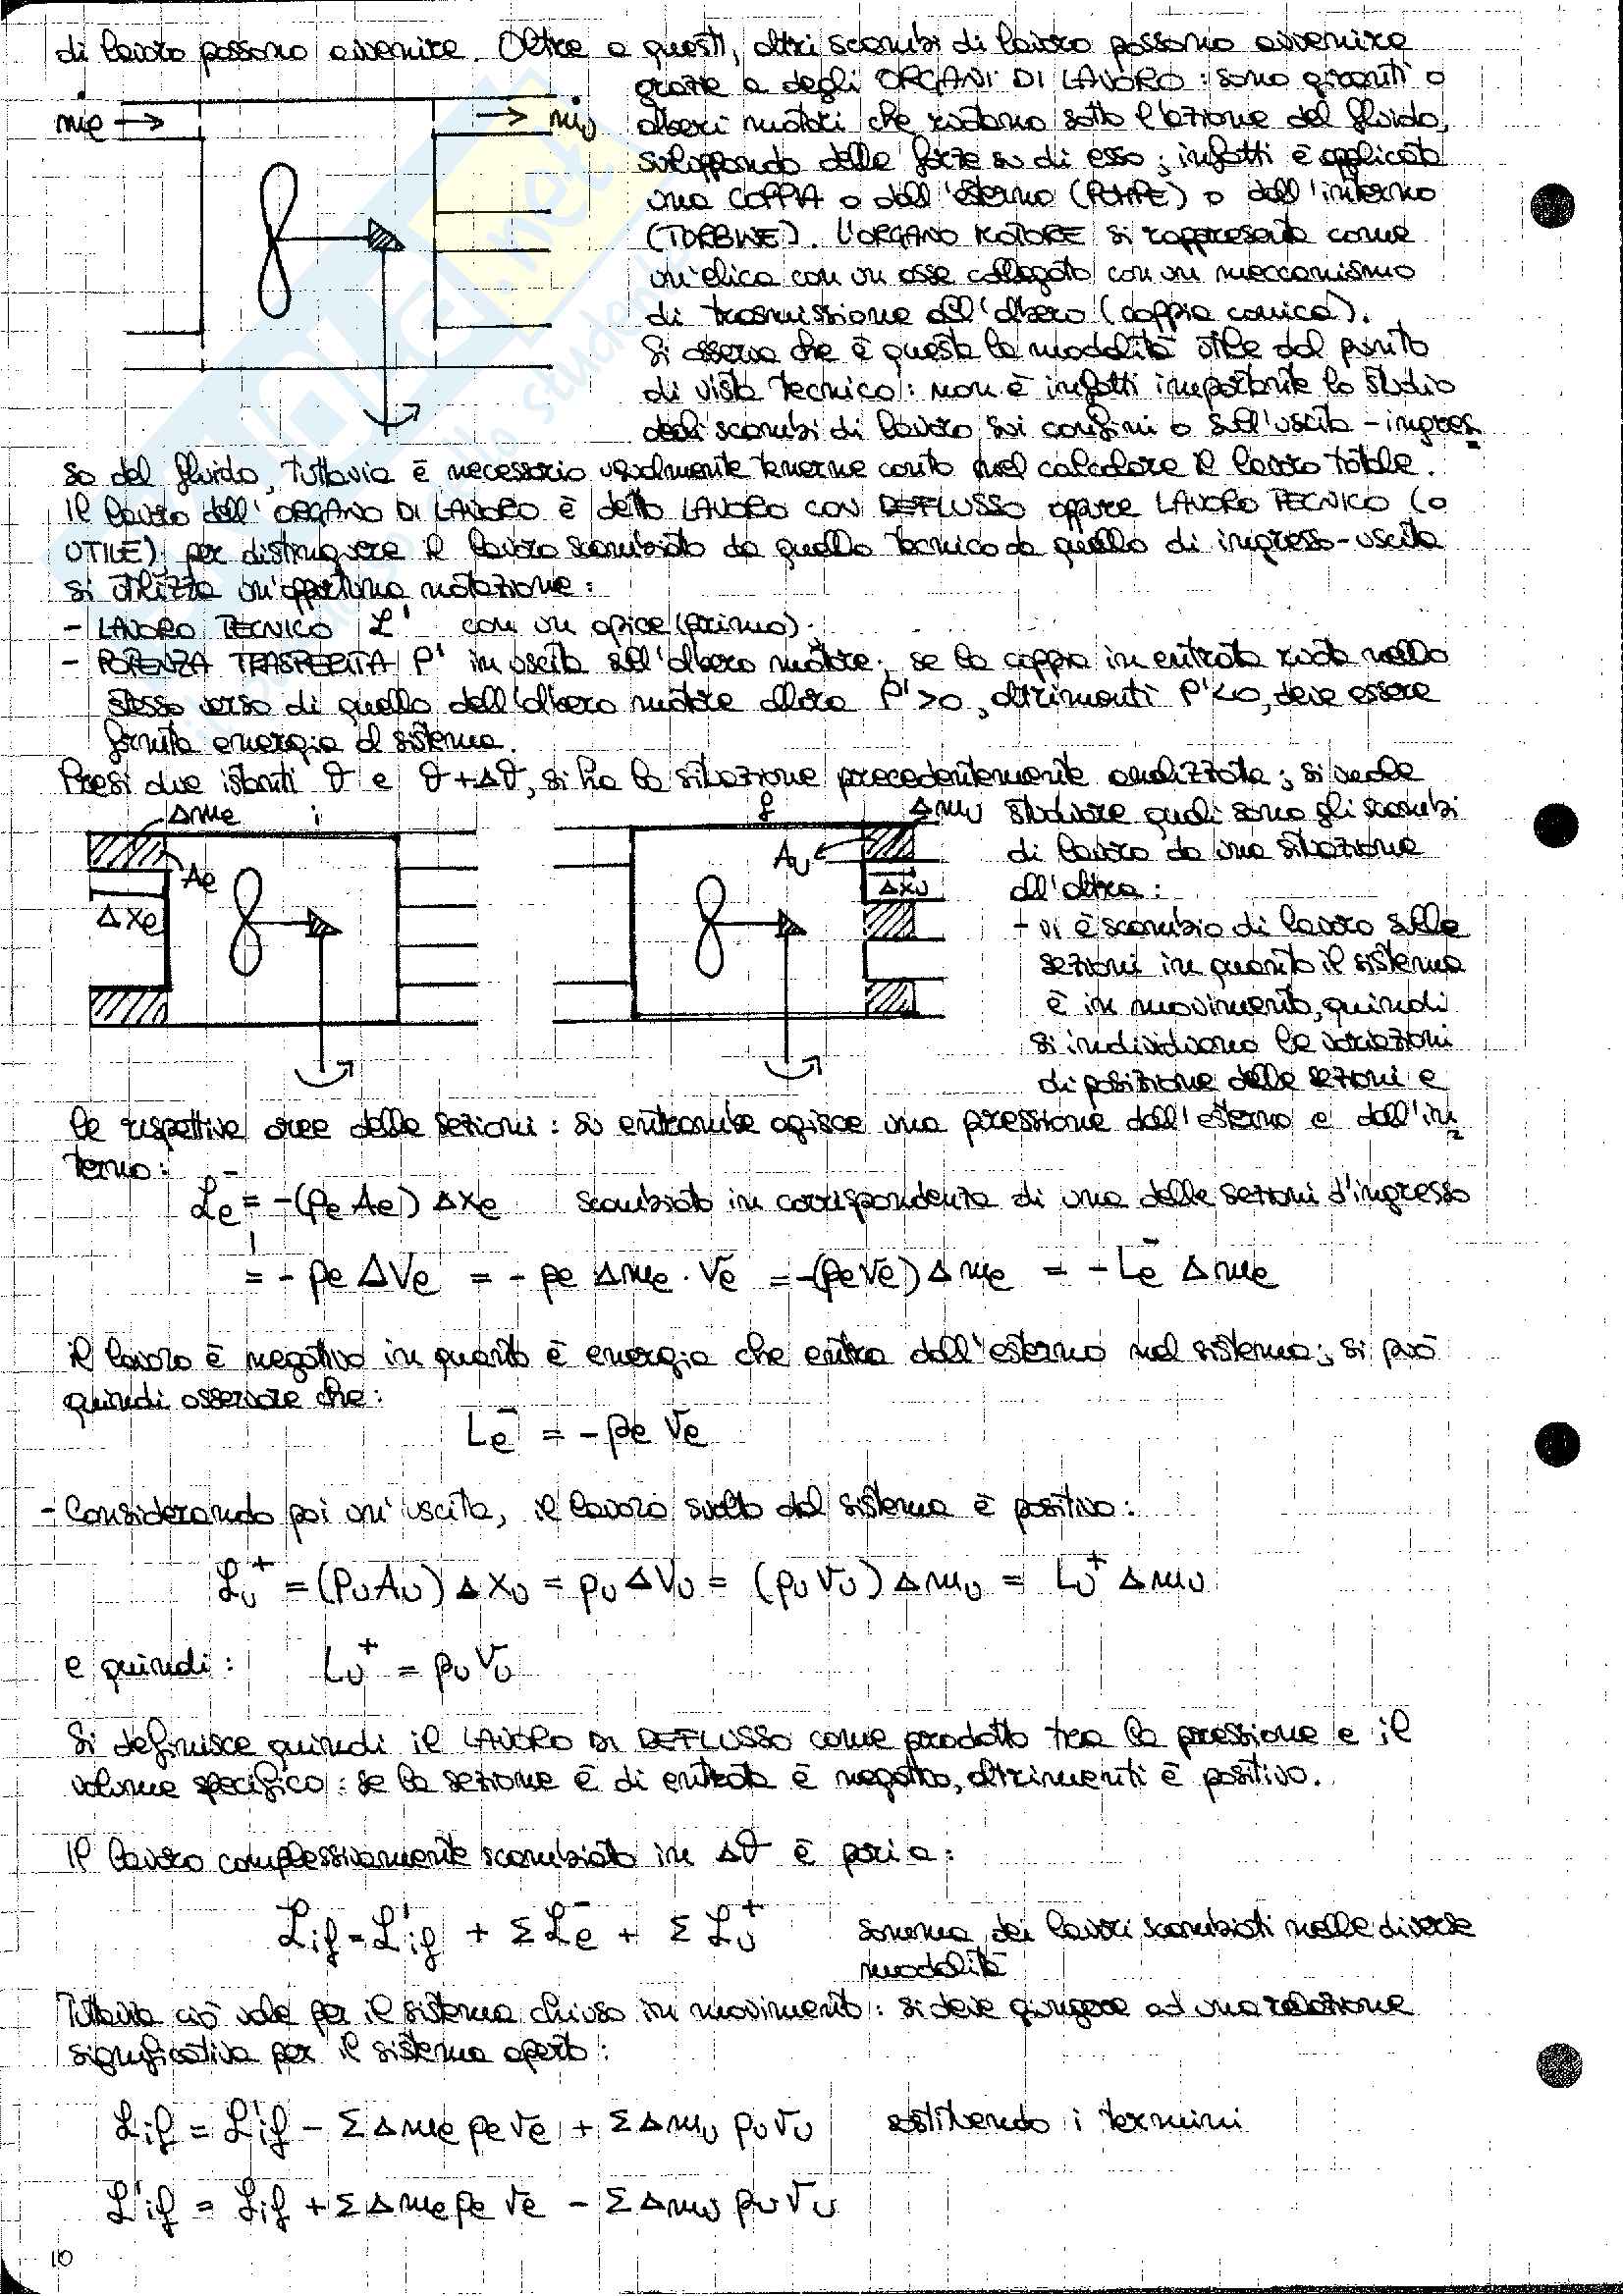 di lavoro possono avvenire. Oltre a questi, altri scambi di lavoro possono avvenire
grazie a degli ORGANI DI LAVORO: sono giranti o
ṁe → → ṁu alberi motori che ruotano sotto l'azione del fluido,
sviluppando delle forze su di esso; infatti è applicata
una COPPIA o dall'esterno (POMPE) o dall'interno
(TURBINE). L'ORGANO MOTORE si rappresenta come
un'elica con un asse collegato con un meccanismo
di trasmissione all'albero (coppia conica).
Si osserva che è questa la modalità utile dal punto
di vista tecnico: non è infatti importante lo studio
degli scambi di lavoro sui confini o sull'uscita-ingres=
so del fluido, tuttavia è necessario usualmente tenerne conto nel calcolare il lavoro totale.
Il lavoro dell'ORGANO DI LAVORO è detto LAVORO CON DEFLUSSO oppure LAVORO TECNICO (o
UTILE) per distinguere il lavoro scambiato da quello tecnico da quello di ingresso-uscita
si utilizza un'opportuna notazione:
- LAVORO TECNICO ℒ' con un apice (primo).
- POTENZA TRASFERITA P' in uscita sull'albero motore; se la coppia in entrata ruota nello
stesso verso di quello dell'albero motore allora P'>0, altrimenti P'<0, deve essere
fornita energia al sistema.
Presi due istanti ϑ e ϑ+Δϑ, si ha la situazione precedentemente analizzata; si vuole
Δme i f Δmu studiare quali sono gli scambi
Au di lavoro da una situazione
Ae Δxu all'altra:
Δxe - vi è scambio di lavoro sulle
sezioni in quanto il sistema
è in movimento, quindi
si individuano le variazioni
di posizione delle sezioni e
le rispettive aree delle sezioni: su entrambe agisce una pressione dall'esterno e dall'in=
terno:
ℒe⁻ = -(pe Ae) Δxe scambiato in corrispondenza di una delle sezioni d'ingresso
= - pe ΔVe = - pe Δme · ve = -(pe ve) Δme = - Le⁻ Δme
il lavoro è negativo in quanto è energia che entra dall'esterno nel sistema; si può
quindi osservare che:
Le⁻ = - pe ve
- Considerando poi un'uscita, il lavoro svolto dal sistema è positivo:
ℒu⁺ = (pu Au) Δxu = pu ΔVu = (pu vu) Δmu = Lu⁺ Δmu
e quindi: Lu⁺ = pu vu
Si definisce quindi il LAVORO DI DEFLUSSO come prodotto tra la pressione e il
volume specifico: se la sezione è di entrata è negativo, altrimenti è positivo.
Il lavoro complessivamente scambiato in Δϑ è pari a:
ℒif = ℒ'if + Σ ℒe⁻ + Σ ℒu⁺ somma dei lavori scambiati nelle diverse
modalità
Tuttavia ciò vale per il sistema chiuso in movimento: si deve giungere ad una relazione
significativa per il sistema aperto:
ℒif = ℒ'if - Σ Δme pe ve + Σ Δmu pu vu sostituendo i termini
ℒ'if = ℒif + Σ Δme pe ve - Σ Δmu pu vu
10